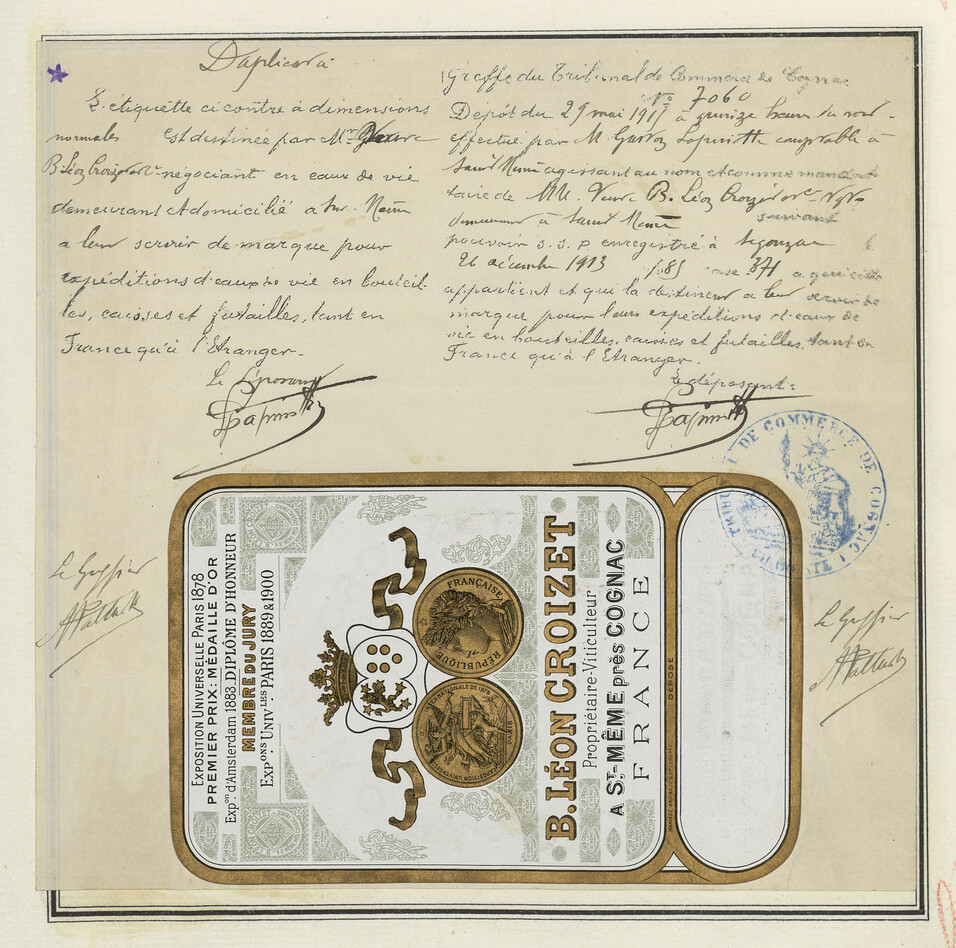 Duplicata
L'étiquette ci contre à dimensions
normales Est destinée par Mme Veuve
B. Léon Croizet & Ce négociant en eaux de vie
demeurant et domicilié a St Même
a leur servir de marque pour
expéditions d'eaux de vie en bouteil
les, caisses et futailles, tant en
France qu'à l'Etranger.
Le Déposant
Greffe du Tribunal de Commerce de Cognac
No 7060
Dépôt du 29 mai 191 à quinze heures du soir
effectué par M. Gaston comptable à
Saint Même agissant au nom et comme mandat
taire de MM. Veuve B. Léon Croizet & Ce Ngts
demeurant à Saint Même suivant
pouvoir s.s.p enregistré à Segonzac le
26 décembre 1913 fo 85 case 371 a qui elle
appartient et qui la destinent a leur servir de
marque pour leurs expéditions d'eaux de
vie en bouteilles, caisses et futailles, tant en
France qu'à l'Etranger.
Le déposant:
TRIBUNAL DE COMMERCE DE COGNAC
Le Greffier
Le Greffier
EXPOSITION UNIVERSELLE PARIS 1878
PREMIER PRIX: MÉDAILLE D'OR
Expon d'Amsterdam 1883, DIPLÔME D'HONNEUR
MEMBRE DU JURY
Expons UNIVLES PARIS 1889 & 1900
RÉPUBLIQUE FRANÇAISE
EXPOSITION UNIVERSELLE INTERNATIONALE DE 1878
PARIS
B. LÉON CROIZET
Propriétaire-Viticulteur
A ST-MÊME près COGNAC
FRANCE
DÉPOSÉ